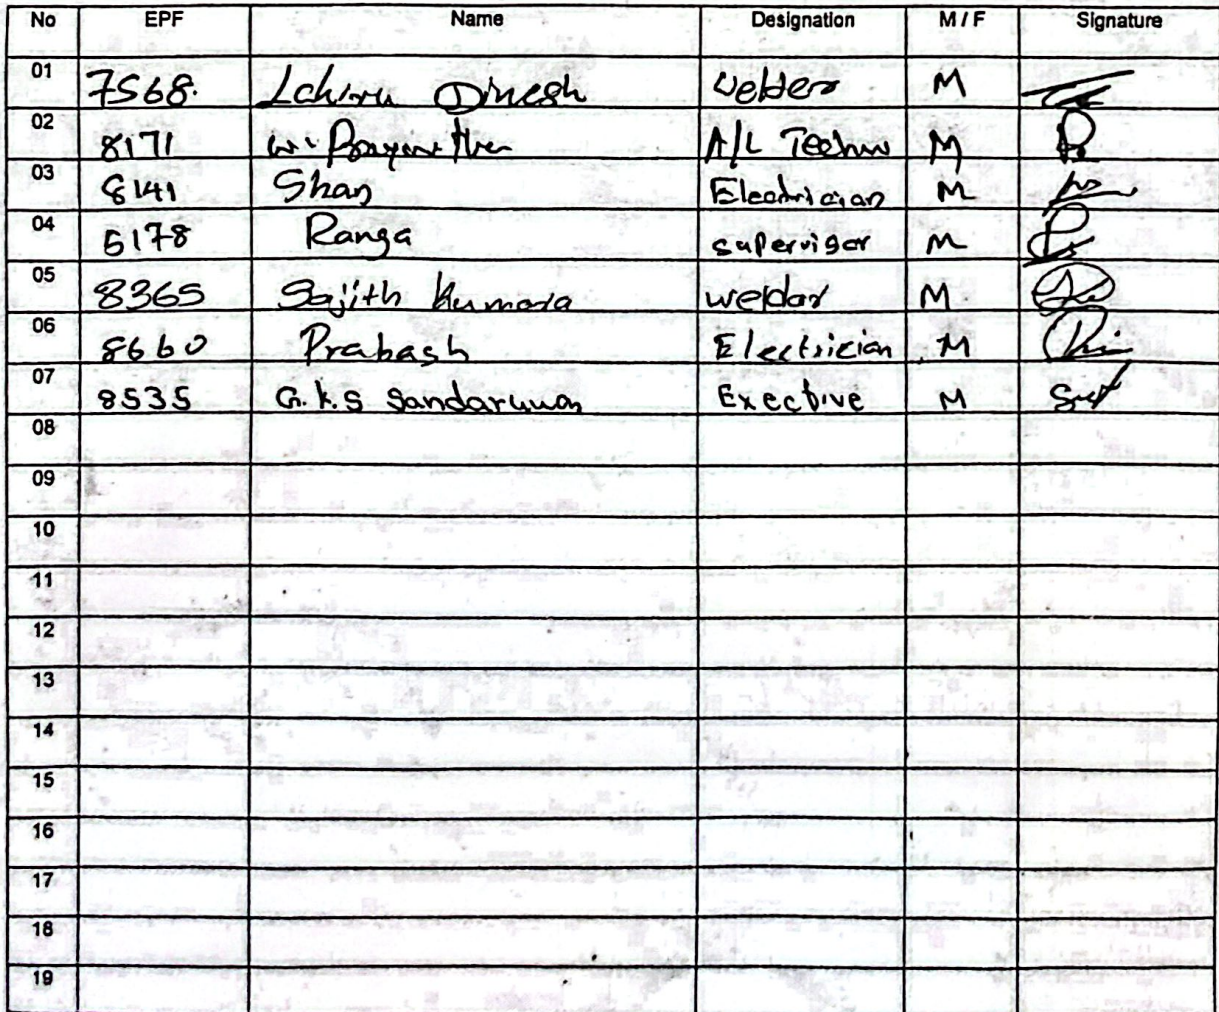 No EPF Name Designation M / F Signature
01 7568. Lahiru Dinesh welder M
02 8171 A/L Techn M
03 8141 Shan Electrician M
04 5178 Ranga supervisor M
05 8365 Sajith Kumara weldar M
06 8660 Prabash Electrician M
07 8535 G.K.S Sandaruwan Exective M
08
09
10
11
12
13
14
15
16
17
18
19